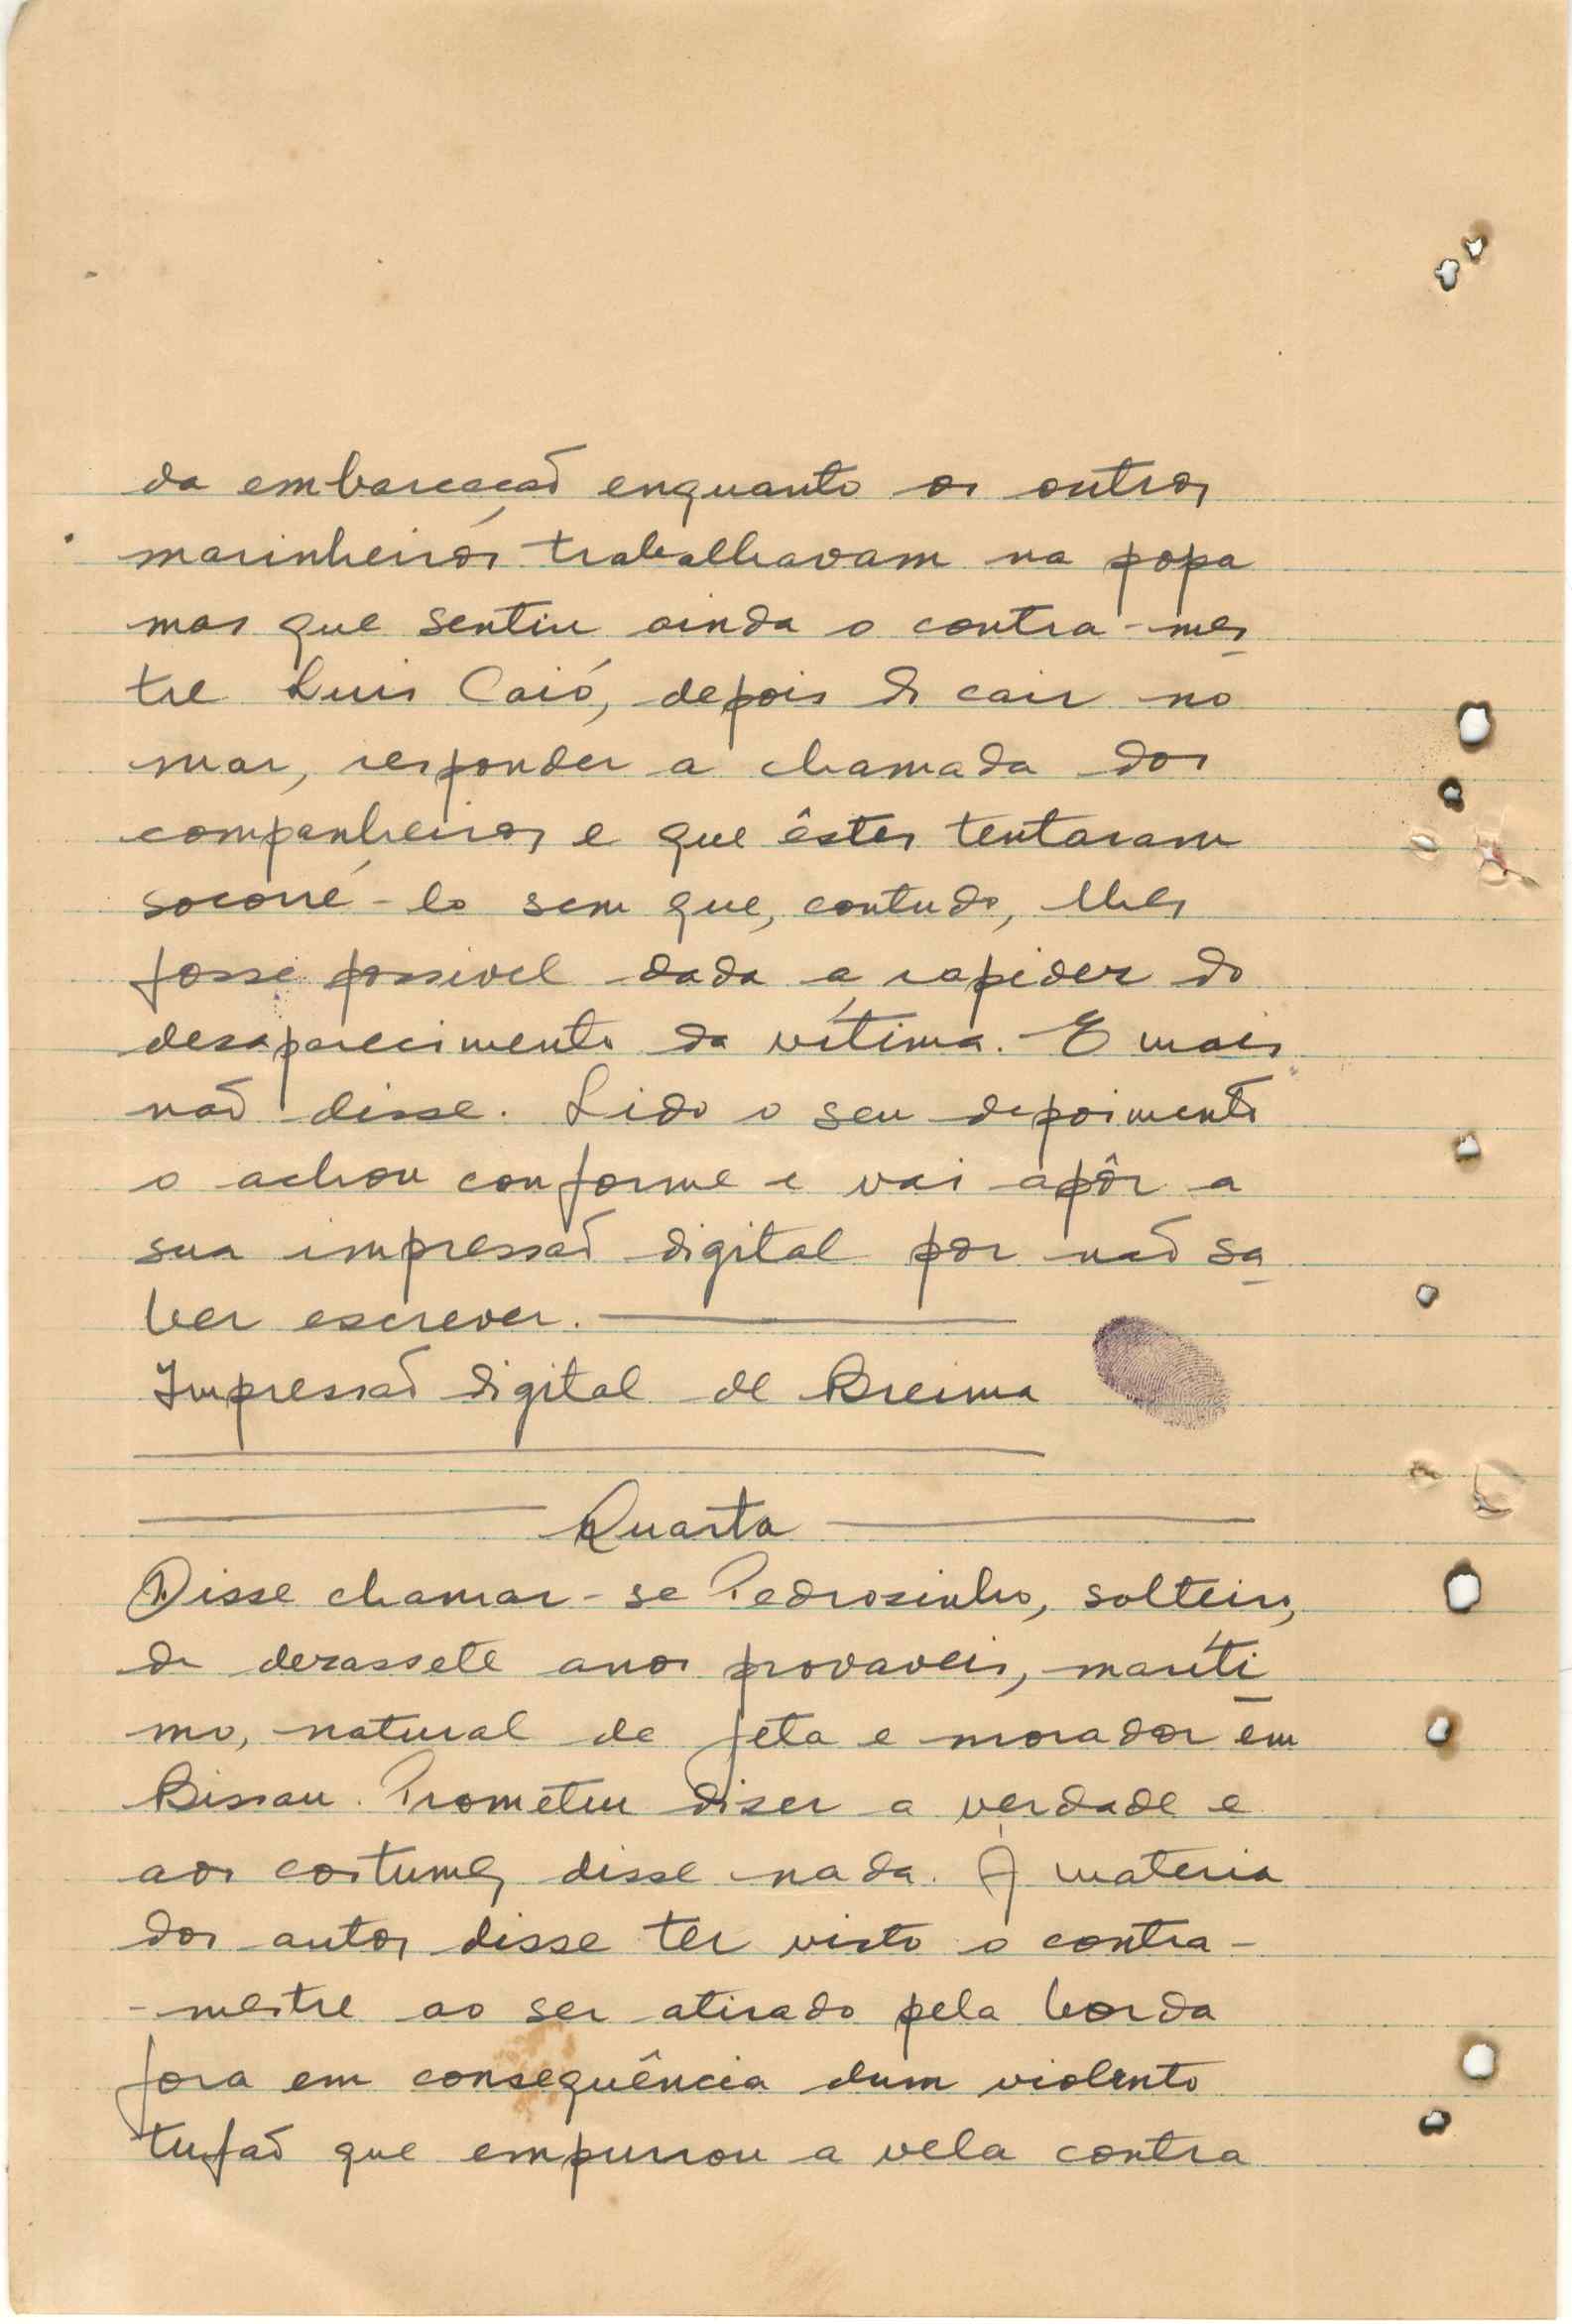 da embarcação enquanto os outros
marinheiros trabalhavam na popa
mas que sentiu ainda o contra-mes
tre Luis Caió, depois de cair no
mar, responder a chamada dos
companheiros e que êstes tentaram
socorrê-lo sem que, contudo, lhes
fosse possivel dada a rapidez do
desaparecimento da vítima. E mais
não disse. Lido o seu depoimento
o achou conforme e vai apôr a
sua impressão digital por não sa
ber escrever.
Impressão digital de Breima
Quarta
Disse chamar-se Pedrosinho, solteiro,
de dezassete anos provaveis, maríti
mo, natural de Jeta e morador em
Bissau. Prometeu diser a verdade e
aos costumes disse nada. Á materia
dos autos disse ter visto o contra-
-mestre ao ser atirado pela borda
fora em consequência dum violento
tufão que empurrou a vela contra